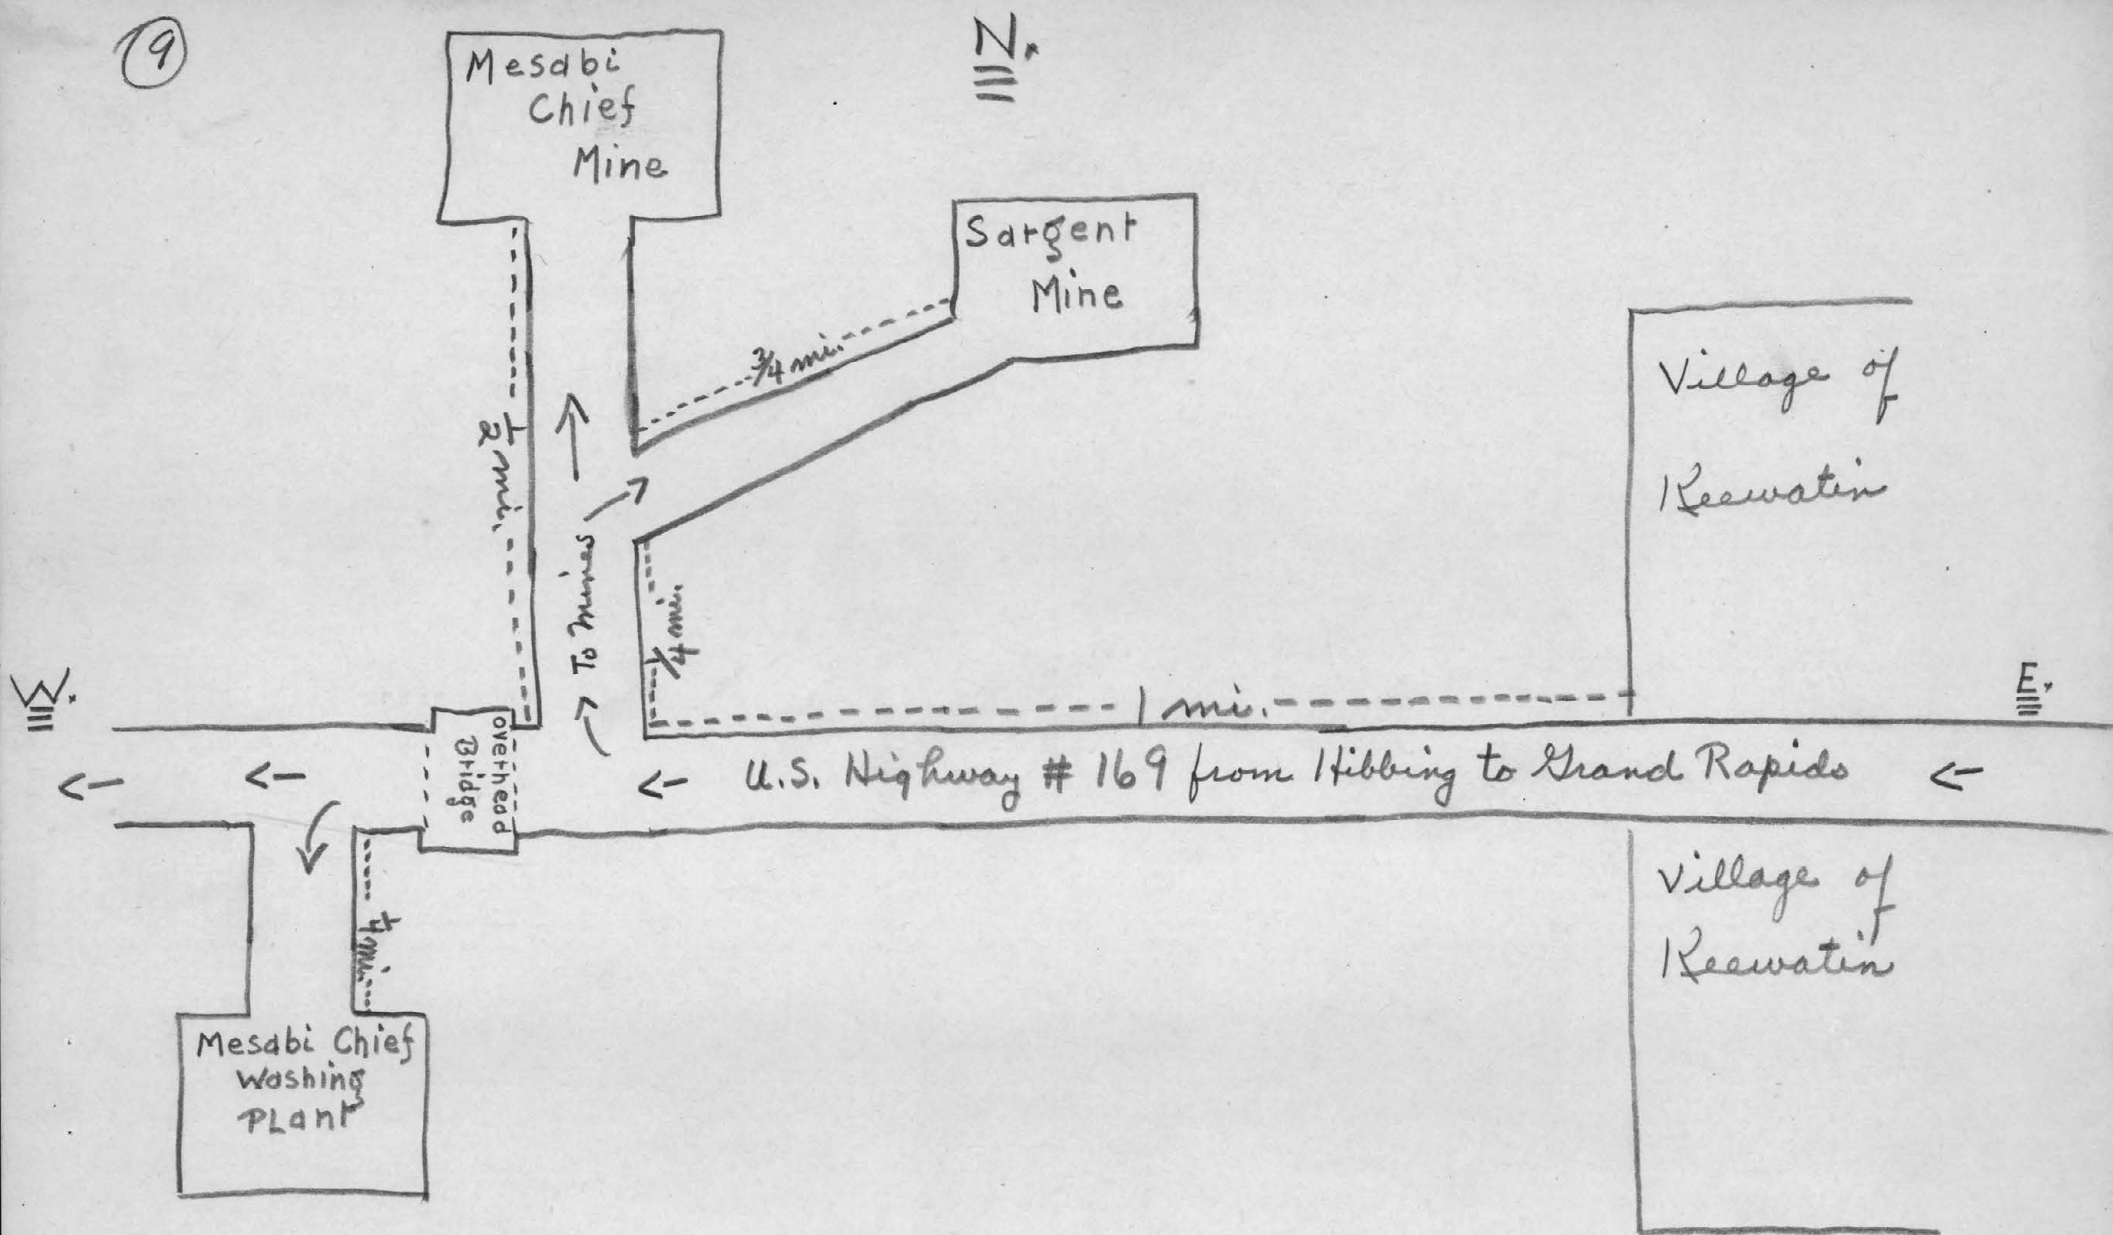 9
N.
Mesabi
Chief
Mine
Sargent
Mine
3/4 mi.
Village of
Keewatin
1/2 mi.
To Mines
1/4 mi.
W.
E.
1 mi.
overhead
Bridge
U.S. Highway # 169 from Hibbing to Grand Rapids
Village of
Keewatin
1/4 mi.
Mesabi Chief
Washing
PLant